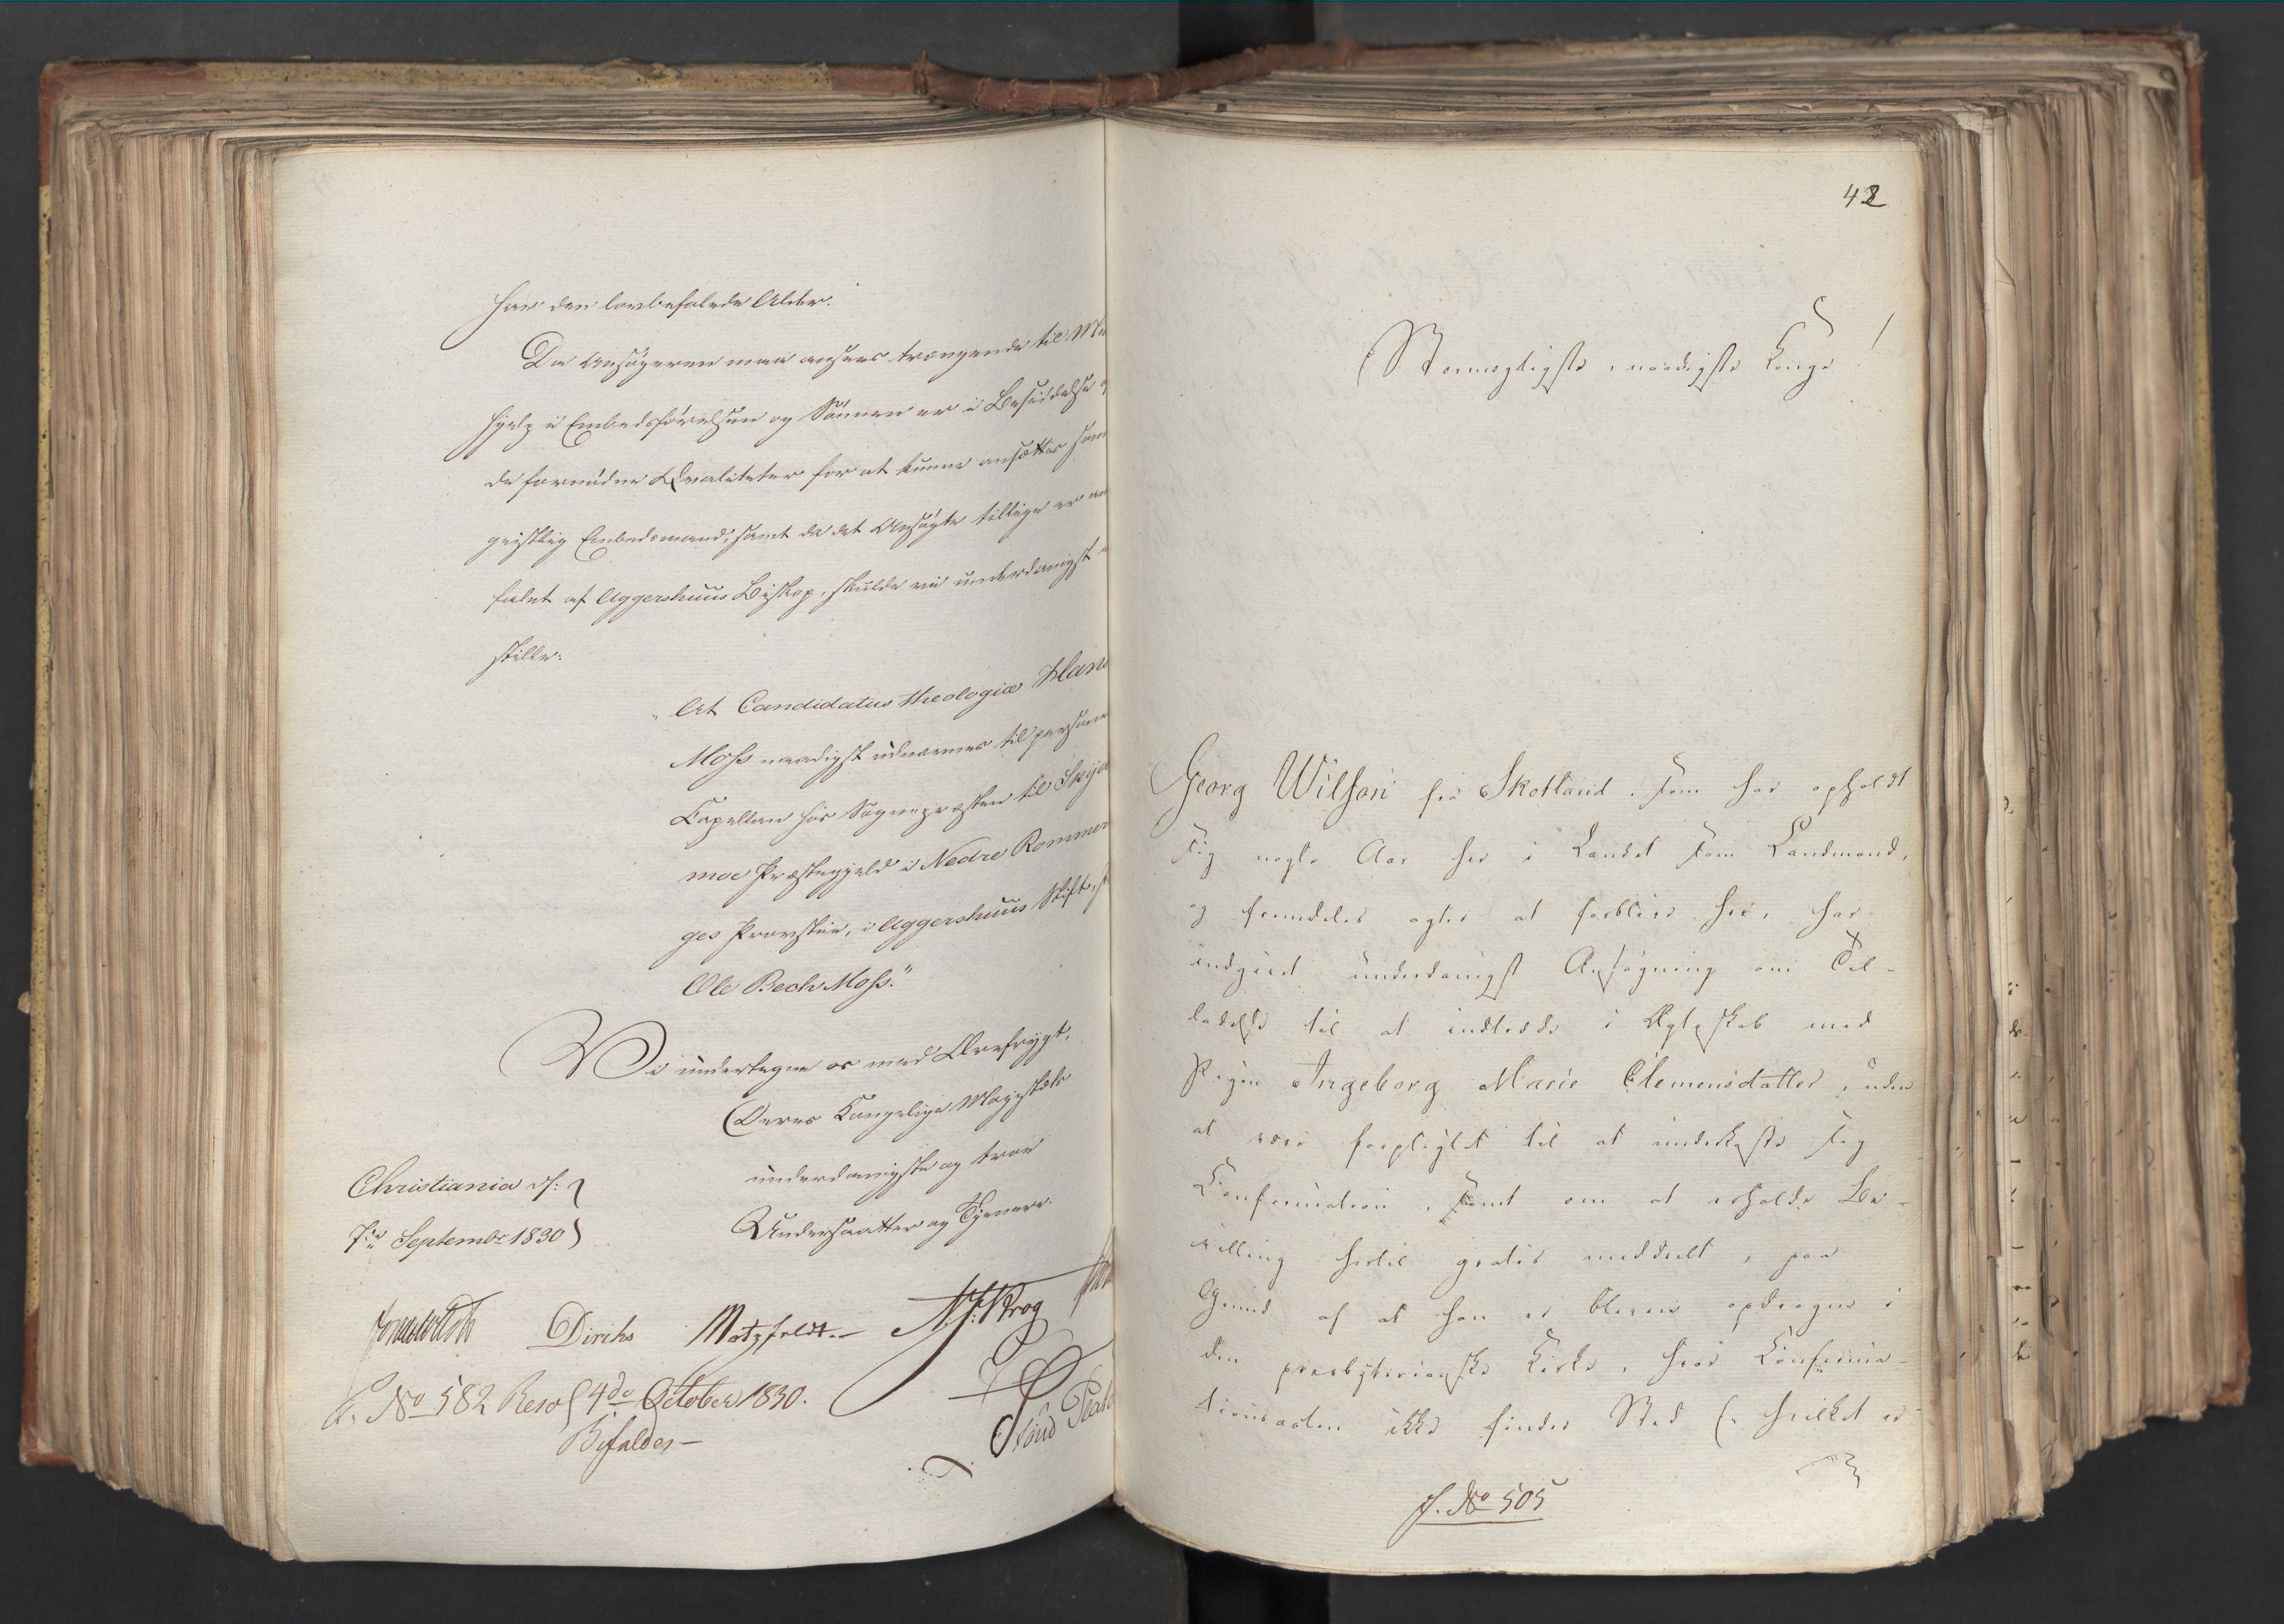 har den lovbefalede Alder.
Da Ansøgeren maa ansees trængende til Me
hjelp i Embedsførelsen og Sønnen er i Besiddelse
de fornødne Qvaliteter for at kunne ansættes som
geistlig Embedsmand, samt da det Ansøgte tillige er an
falet af Aggershuus Biskop, skulde vi underdanigst
stille:
"At Candidatus theologiæ Hans
Moss naadigst udnævnes til person
Capellan hos Sognepræsten til Skje
moe Præstegjeld i Nedre Rommer
ges Provstie, i Aggershuus Stift,
Ole Bech Moss."
Vi undertegne os med Ærefrygt,
Deres Kongelige Majestæts
underdanigste og troe
Undersaatter og Tjenere.
Christiania d:
7de Septembr 1830
Diriks Motzfeldt.- 
No 582 Resol 4de October 1830.
Bifaldes-
42
Stormægtigste, naadigste Konge!
Georg Wilson fra Skotland, som har opholdt
sig nogle Aar her i Landet som Landmand,
og fremdeles agter at forblive her, har
indgivet underdanigst Ansøgning om Til-
ladelse til at indtræde i Ægteskab med
Pigen Ingeborg Marie Clemensdatter, uden
at være forpligtet til at underkaste sig
Confirmation, samt om at erholde Be-
villing hertil gratis meddeelt, paa
Grund af at han er bleven opdragen i
den presbyterianske Kirke, hvor Confirma-
tionsacten ikke finder Sted (: hvilket er
J. No 505